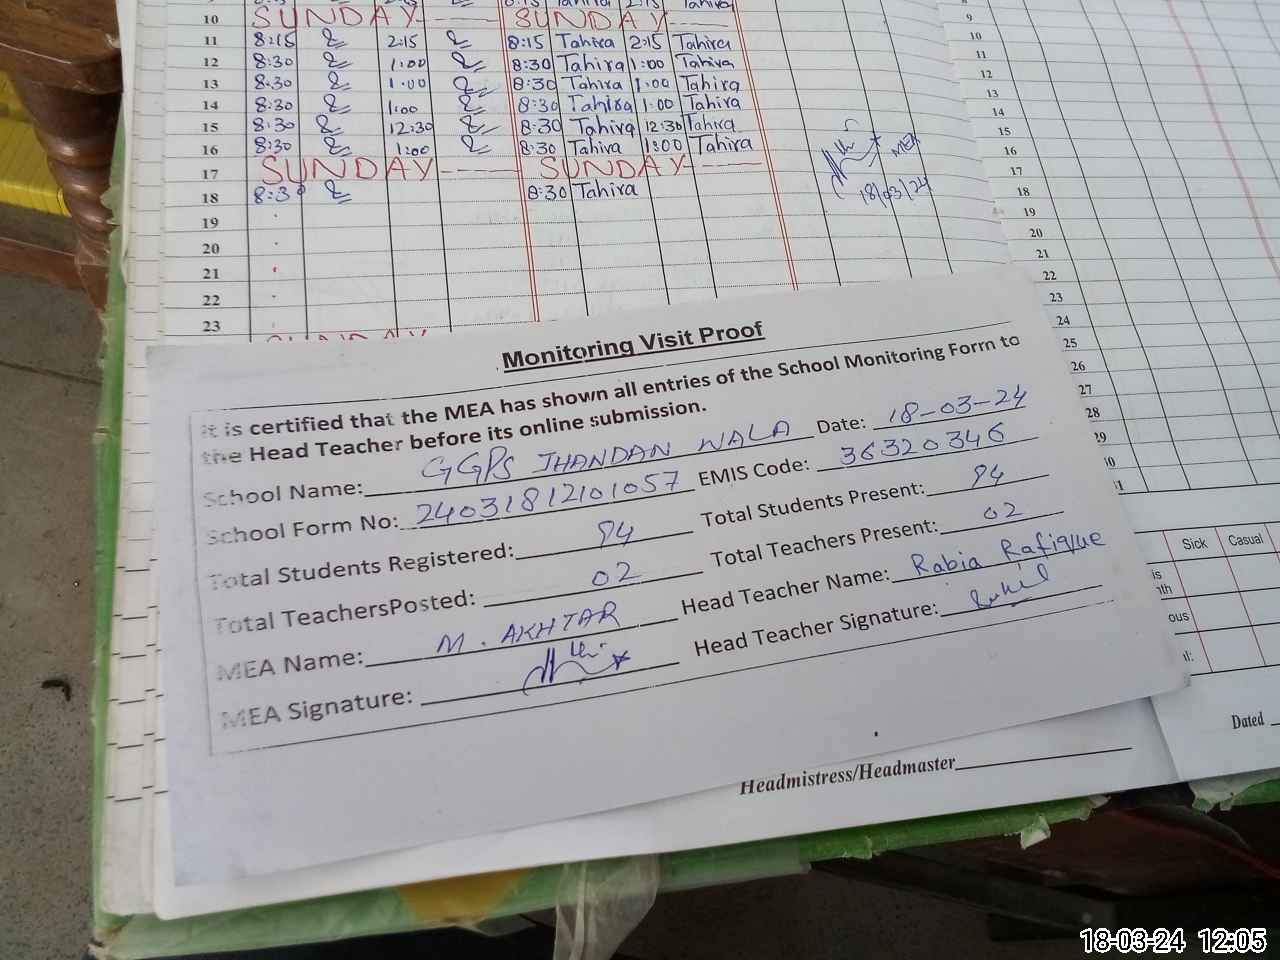 10 SUNDAY SUNDAY
11 8:15 2:15 8:15 Tahira 2:15 Tahira
12 8:30 1:00 8:30 Tahira 1:00 Tahira
13 8:30 1:00 8:30 Tahira 1:00 Tahira
14 8:30 1:00 8:30 Tahira 1:00 Tahira
15 8:30 12:30 8:30 Tahira 12:30 Tahira
16 8:30 1:00 8:30 Tahira 1:00 Tahira
17 SUNDAY SUNDAY
18 8:30 8:30 Tahira
19
20
21
22
23
MEA
18/03/24
9
10
11
12
13
14
15
16
17
18
19
20
21
22
23
24
25
26
27
28
29
Monitoring Visit Proof
It is certified that the MEA has shown all entries of the School Monitoring Form to
the Head Teacher before its online submission.
School Name: GGPS JHANDAN WALA Date: 18-03-24
School Form No: 24031812101057 EMIS Code: 36320346
Total Students Registered: 94 Total Students Present: 94
Total TeachersPosted: 02 Total Teachers Present: 02
MEA Name: M. AKHTAR Head Teacher Name: Rabia Rafique
MEA Signature: Head Teacher Signature:
Sick Casual
Dated
Headmistress/Headmaster
18-03-24 12:05